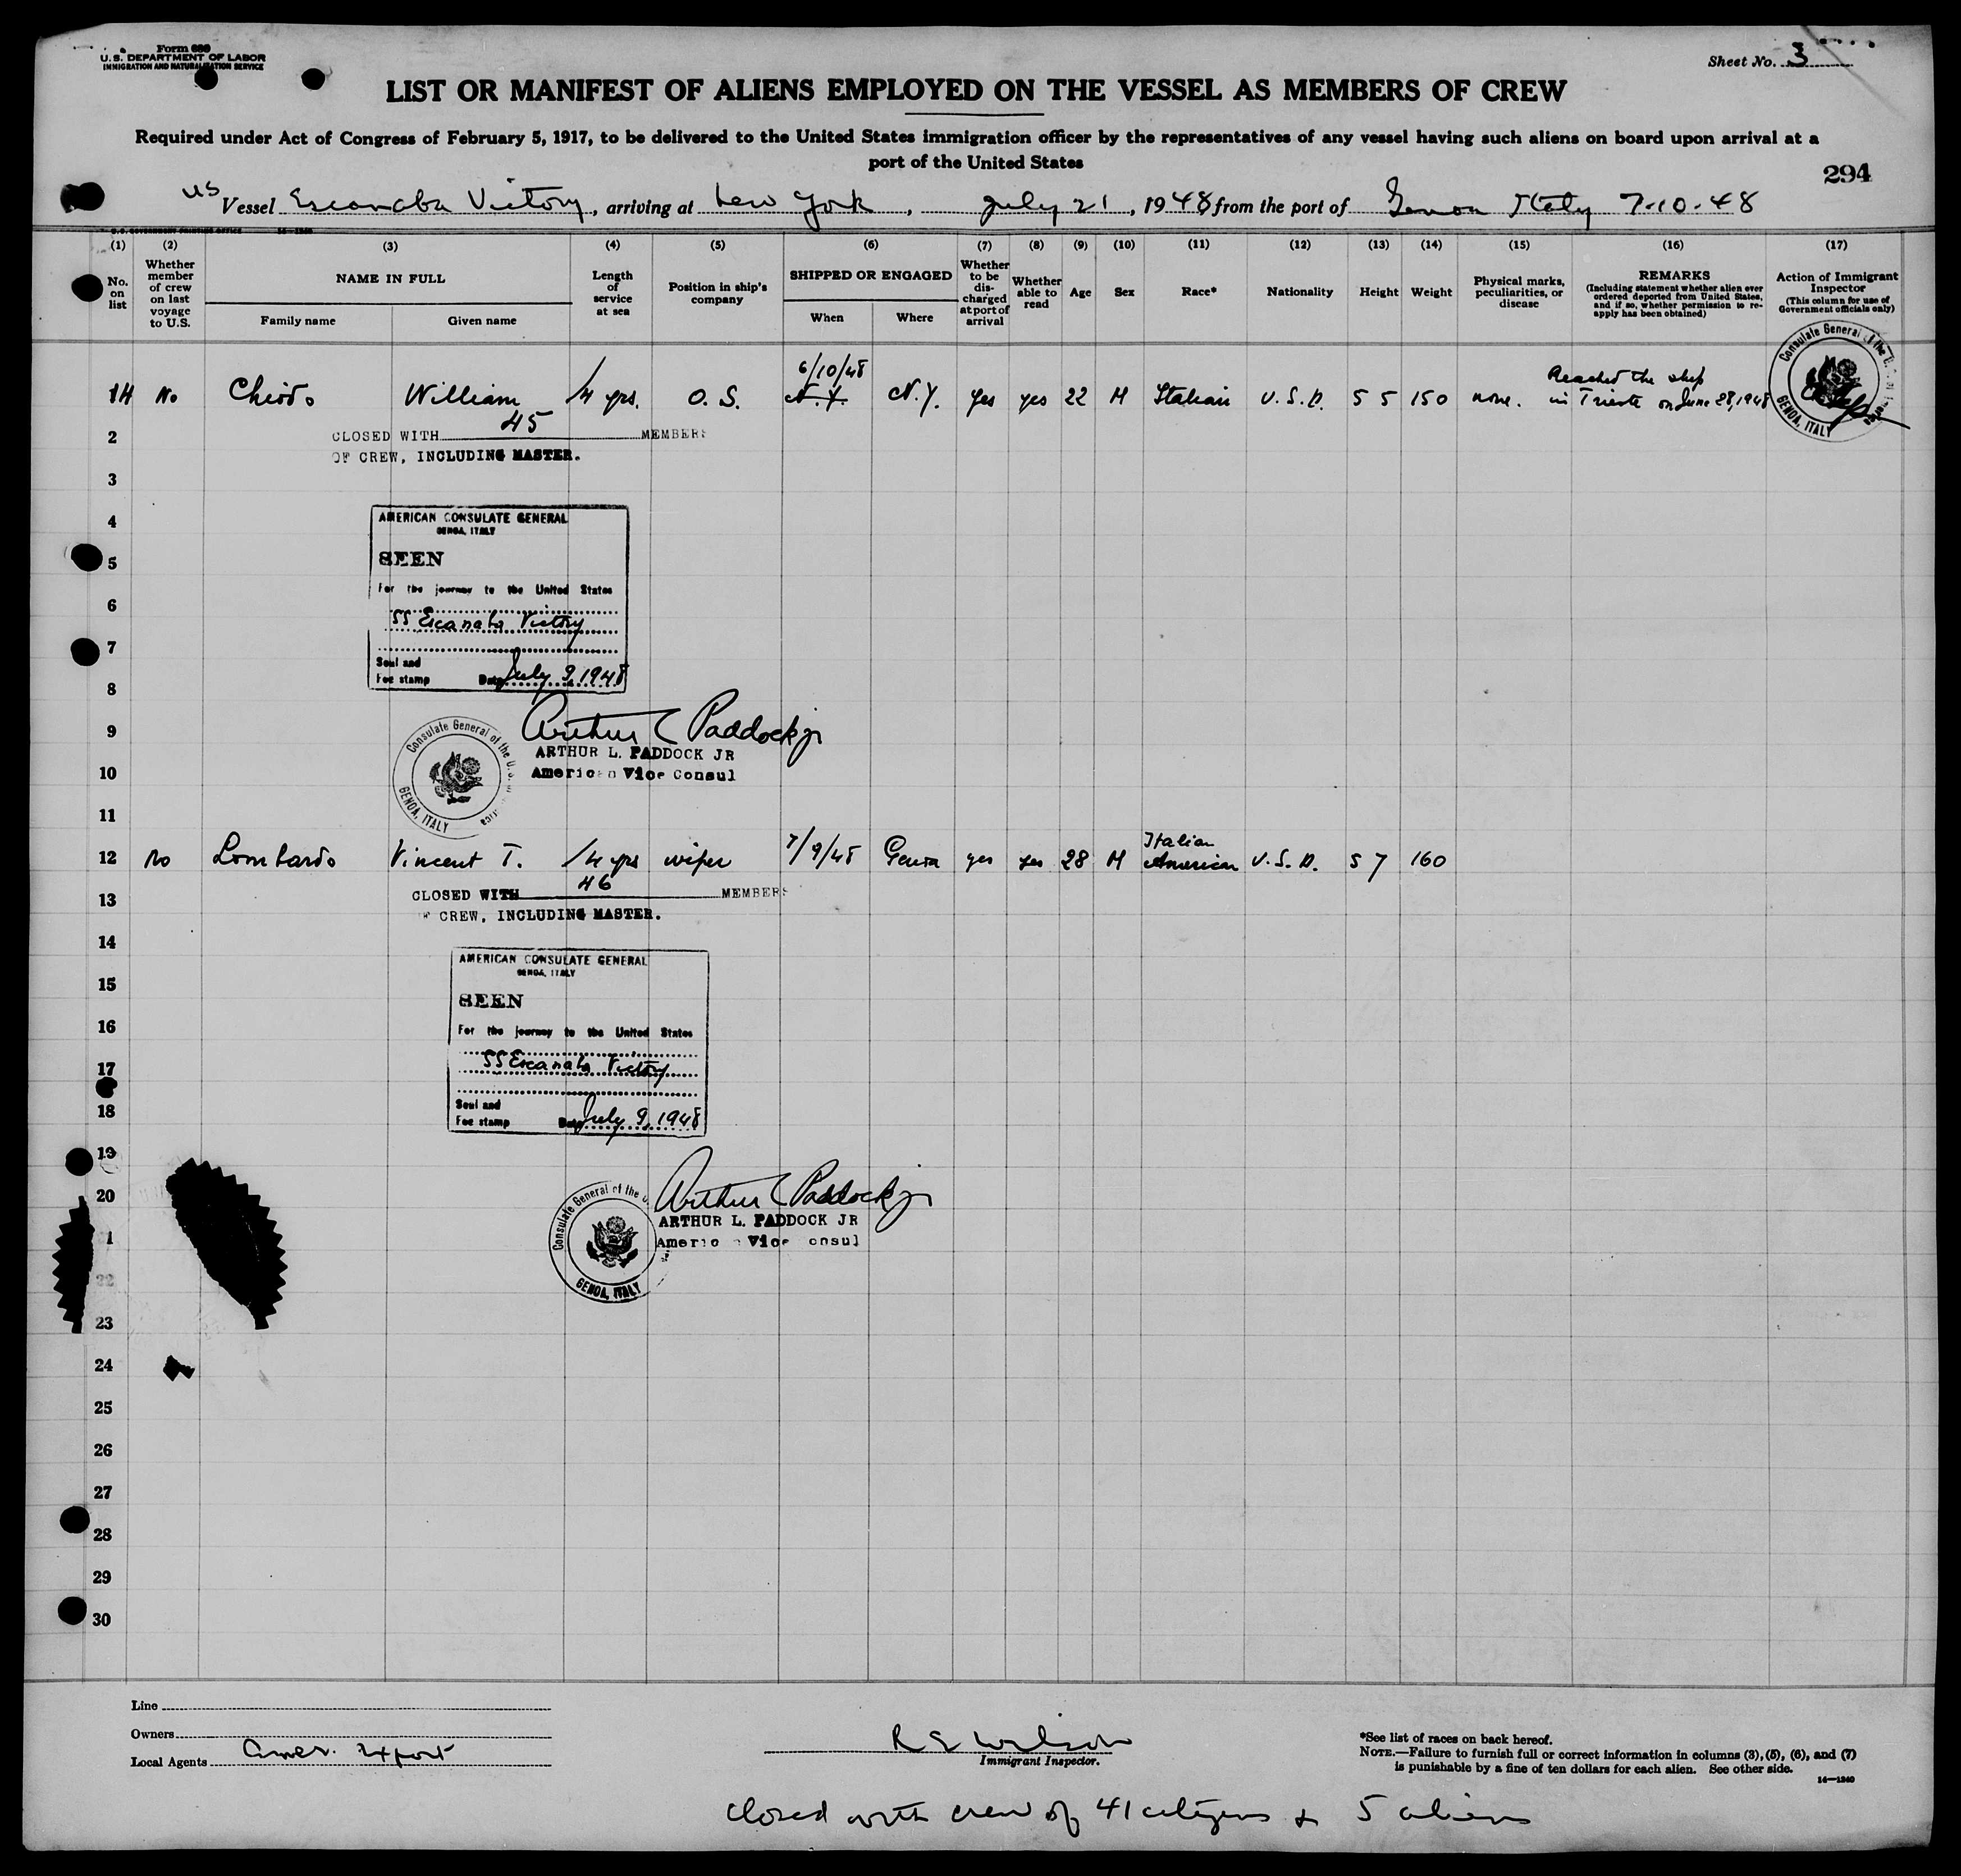 Form 680
U.S. DEPARTMENT OF LABOR
IMMIGRATION AND NATURALIZATION SERVICE
Sheet No. 3
LIST OR MANIFEST OF ALIENS EMPLOYED ON THE VESSEL AS MEMBERS OF CREW
Required under Act of Congress of February 5, 1917, to be delivered to the United States immigration officer by the representatives of any vessel having such aliens on board upon arrival at a
port of the United States
294
US Vessel Escanaba Victory, arriving at New York, July 21, 1948 from the port of Genoa Italy 7-10-48
(1) (2) (3) (4) (5) (6) (7) (8) (9) (10) (11) (12) (13) (14) (15) (16) (17)
No. on list
Whether member of crew on last voyage to U.S.
NAME IN FULL
Family name Given name
Length of service at sea
Position in ship's company
SHIPPED OR ENGAGED
When Where
Whether to be discharged at port of arrival
Whether able to read
Age
Sex
Race*
Nationality
Height
Weight
Physical marks, peculiarities, or disease
REMARKS
(Including statement whether alien ever ordered deported from United States, and if so, whether permission to reapply has been obtained)
Action of Immigrant Inspector
(This column for use of Government officials only)
6/10/48
No Chiodo William 4 yrs. O.S. N.Y. N.Y. yes yes 22 M Italian U.S.A. 5 5 150 none. Reached the ship
in Trieste on June 28, 1948
Consulate General of the U.S.
GENOA, ITALY
2 CLOSED WITH 45 MEMBERS
OF CREW, INCLUDING MASTER.
3
4
AMERICAN CONSULATE GENERAL
GENOA, ITALY
5
SEEN
For the journey to the United States
6
SS Escanaba Victory
7
Seal and
Fee stamp Date July 9, 1948
8
9
Arthur L Paddock jr
ARTHUR L. PADDOCK JR
10
American Vice Consul
Consulate General of the U.S.
GENOA, ITALY
11
12 No Lombardo Vincent T. 4 yrs wiper 7/9/48 Genoa yes yes 28 M Italian American U.S.A. 5 7 160
13 CLOSED WITH 46 MEMBERS
OF CREW, INCLUDING MASTER.
14
AMERICAN CONSULATE GENERAL
GENOA, ITALY
15
SEEN
16
For the journey to the United States
17
SS Escanaba Victory
18
Seal and
Fee stamp Date July 9, 1948
19
20
Arthur L Paddock jr
ARTHUR L. PADDOCK JR
1
American Vice Consul
Consulate General of the U.
GENOA, ITALY
22
23
24
25
26
27
28
29
30
Line
Owners
Local Agents Amer. Export
R E Wilson
Immigrant Inspector.
*See list of races on back hereof.
NOTE.—Failure to furnish full or correct information in columns (3), (5), (6), and (7)
is punishable by a fine of ten dollars for each alien. See other side.
14—1240
Closed with crew of 41 citizens & 5 aliens